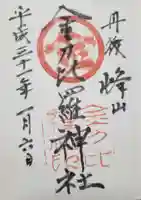 丹後 峰山
金刀比羅神社
平成三十一年 一月六日